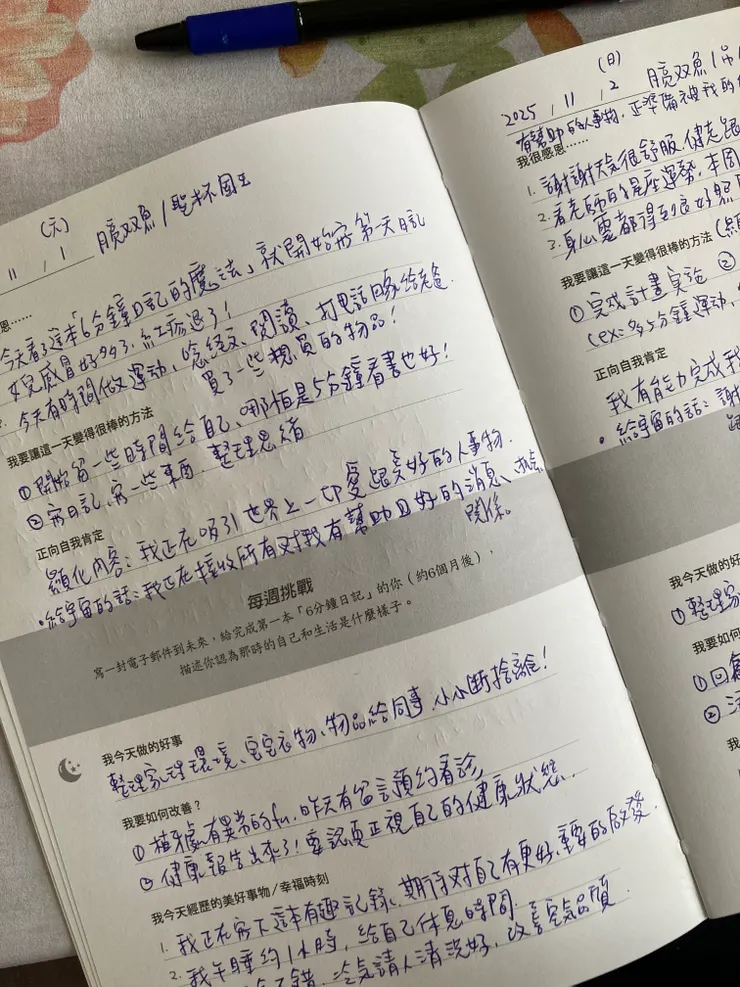 (六)
11 / 1 腨双魚 / 聖杯國王
恩……
今天看了這本「6分鐘日記的魔法」就開始寫第一天日記
女兒感冒好多了,紅疹退了!
今天有時間做運動、唸經文、閱讀、打電話關家給老爸.
買了一些想買的物品!
我要讓這一天變得很棒的方法
①開始留一些時間給自己、哪怕是5分鐘看書也好!
②寫日記、寫一些東西、整理思緒
正向自我肯定
顯化內容:我正在吸引世界上一切愛跟美好的人事物.
•給宇宙的話:我正在接收所有對我有幫助且好的消息、
關係。
每週挑戰
寫一封電子郵件到未來,給完成第一本「6分鐘日記」的你(約6個月後),
描述你認為那時的自己和生活是什麼樣子。
我今天做的好事
整理家裡環境、寶宝衣物、物品給同事,小小斷捨離!
我要如何改善?
①植牙處有異常的fu,昨天有留言預約看診
②健康報告出來了!要認真正視自己的健康狀態.
我今天經歷的美好事物/幸福時刻
1. 我正在寫下這本有趣記錄、期待對自己有更好、重要的啟發.
2. 我午睡約1小時,給自己休息時間.
不錯,冷氣請人清洗好,改善空氣品質.
(日)
2025 / 11 / 2
有幫助的人事物,正準備被我的
我很感恩……
1. 謝謝天氣很舒服,健走
2. 看老師的星座運勢,本周
3. 身心靈都得到良好照
我要讓這一天變得很棒的方法
①完成計畫實施 ②
(ex: 多5分鐘運動、
正向自我肯定
我有能力完成我
• 給宇宙的話:謝
我今天做的好
①整理家
我要如何
①回
②
我